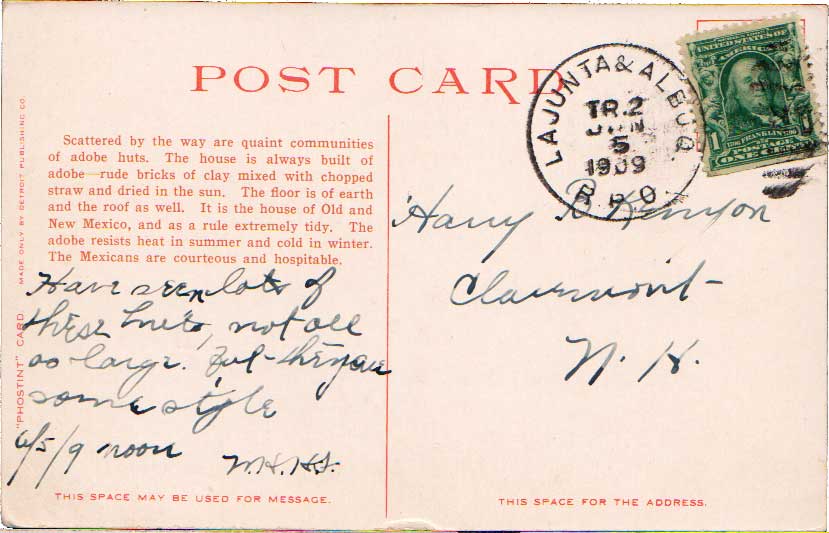 POST CARD
Scattered by the way are quaint communities
of adobe huts. The house is always built of
adobe rude bricks of clay mixed with chopped
straw and dried in the sun. The floor is of earth
and the roof as well. It is the house of Old and
New Mexico, and as a rule extremely tidy. The
adobe resists heat in summer and cold in winter.
The Mexicans are courteous and hospitable.
Have seen lots of
these huts, not all
as large. But they are
some style
6/5/9 noon
THIS SPACE MAY BE USED FOR MESSAGE.
"PHOSTINT" CARD. MADE ONLY BY DETROIT PUBLISHING CO.
LAJUNTA & ALBUQ.
TR. 2
JUN
5
1909
R.P.O.
UNITED STATES OF
AMERICA
1 FRANKLIN 1
POSTAGE
ONE CENT
Harry Kenyon
Claremont
N. H.
THIS SPACE FOR THE ADDRESS.